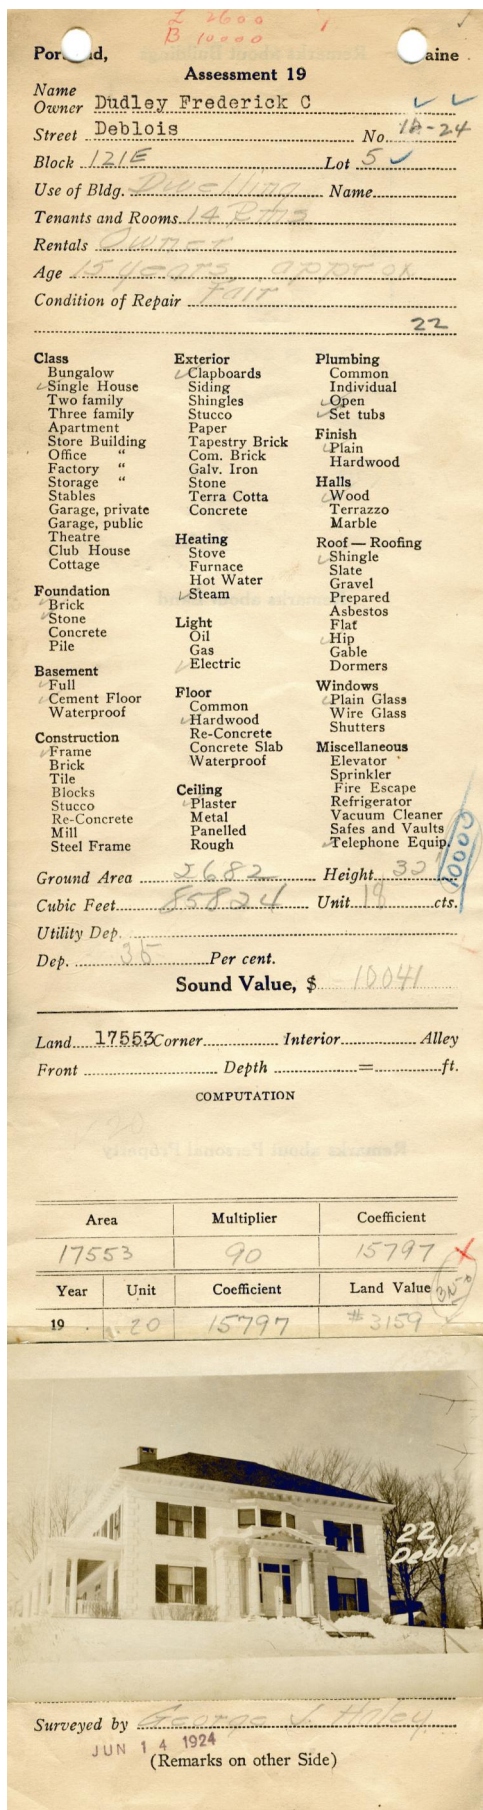 L 2600
B 10000
Portland, Maine
Assessment 19
Name
Owner Dudley Frederick C
Street Deblois No. 18-24
Block 121E Lot 5
Use of Bldg. Dwelling Name
Tenants and Rooms 14 Rms
Rentals Owner
Age 15 years approx
Condition of Repair Fair
22
Class
Bungalow
Single House
Two family
Three family
Apartment
Store Building
Office "
Factory "
Storage "
Stables
Garage, private
Garage, public
Theatre
Club House
Cottage
Foundation
Brick
Stone
Concrete
Pile
Basement
Full
Cement Floor
Waterproof
Construction
Frame
Brick
Tile
Blocks
Stucco
Re-Concrete
Mill
Steel Frame
Exterior
Clapboards
Siding
Shingles
Stucco
Paper
Tapestry Brick
Com. Brick
Galv. Iron
Stone
Terra Cotta
Concrete
Heating
Stove
Furnace
Hot Water
Steam
Light
Oil
Gas
Electric
Floor
Common
Hardwood
Re-Concrete
Concrete Slab
Waterproof
Ceiling
Plaster
Metal
Panelled
Rough
Plumbing
Common
Individual
Open
Set tubs
Finish
Plain
Hardwood
Halls
Wood
Terrazzo
Marble
Roof — Roofing
Shingle
Slate
Gravel
Prepared
Asbestos
Flat
Hip
Gable
Dormers
Windows
Plain Glass
Wire Glass
Shutters
Miscellaneous
Elevator
Sprinkler
Fire Escape
Refrigerator
Vacuum Cleaner
Safes and Vaults
Telephone Equip.
10000
Ground Area 2682 Height 32'
Cubic Feet 85824 Unit 18 cts.
Utility Dep.
Dep. 35 Per cent.
Sound Value, $ 10041
Land 17553 Corner Interior Alley
Front Depth = ft.
COMPUTATION
Area Multiplier Coefficient
17553 90 15797
Year Unit Coefficient Land Value
19 .20 15797 $3159
22
Deblois
Surveyed by George J. Haley
JUN 14 1924
(Remarks on other Side)